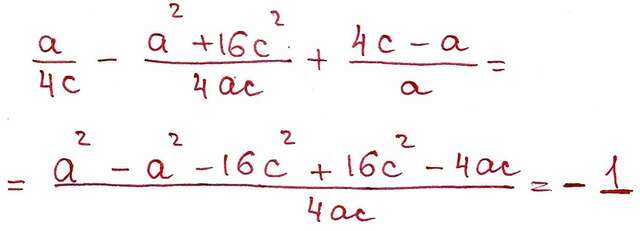 a/4c - (a² + 16c²)/4ac + (4c - a)/a =
= (a² - a² - 16c² + 16c² - 4ac)/4ac = - 1